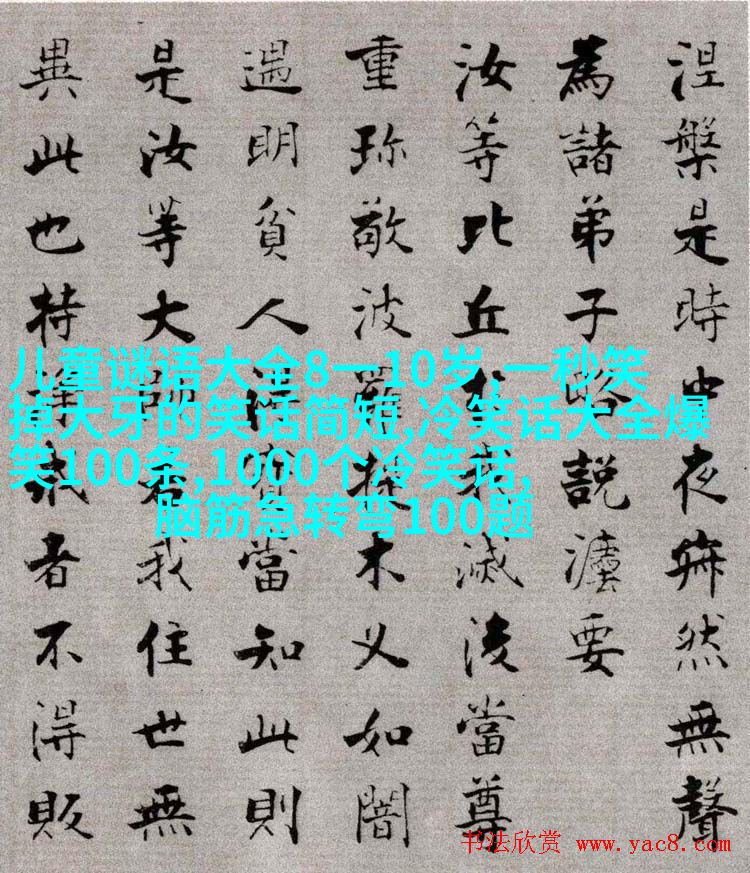 涅槃是時中夜寂然無聲
為諸弟子略説灋要
汝等比丘於我滅後當尊
重珎敬波羅提木叉如闇
遇明貧人得寶當知此則
是汝等大師若我住世無
異此也持淨戒者不得販
儿童谜语大全8一10岁,一秒笑
掉大牙的笑话简短,冷笑话大全爆
笑100条,1000个冷笑话,
脑筋急转弯100题
书法欣赏 www.yac8.com